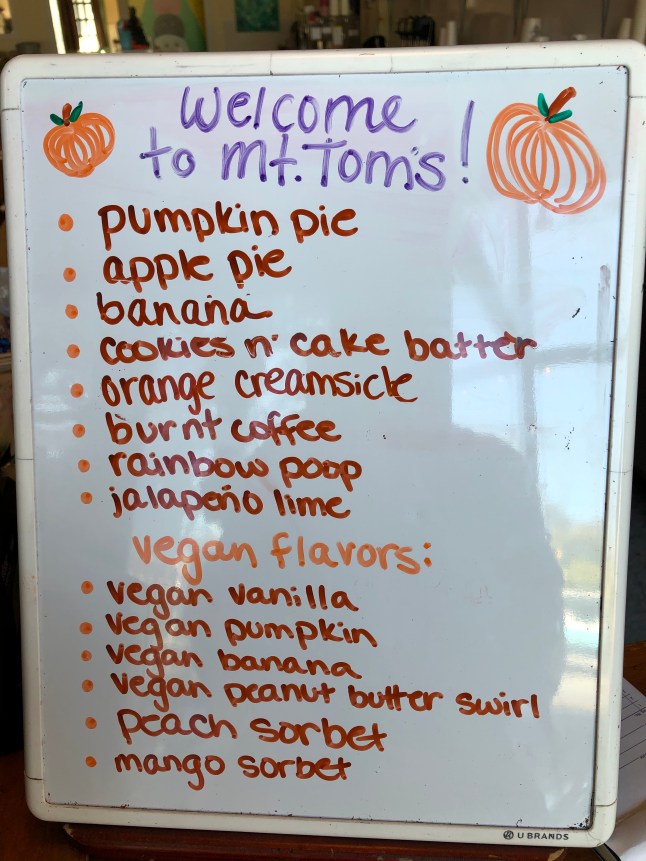 Welcome
to Mt. Tom's!
pumpkin pie
apple pie
banana
cookies n' cake batter
orange creamsicle
burnt coffee
rainbow poop
jalapeño lime
vegan flavors:
vegan vanilla
vegan pumpkin
vegan banana
vegan peanut butter swirl
peach sorbet
mango sorbet
U BRANDS